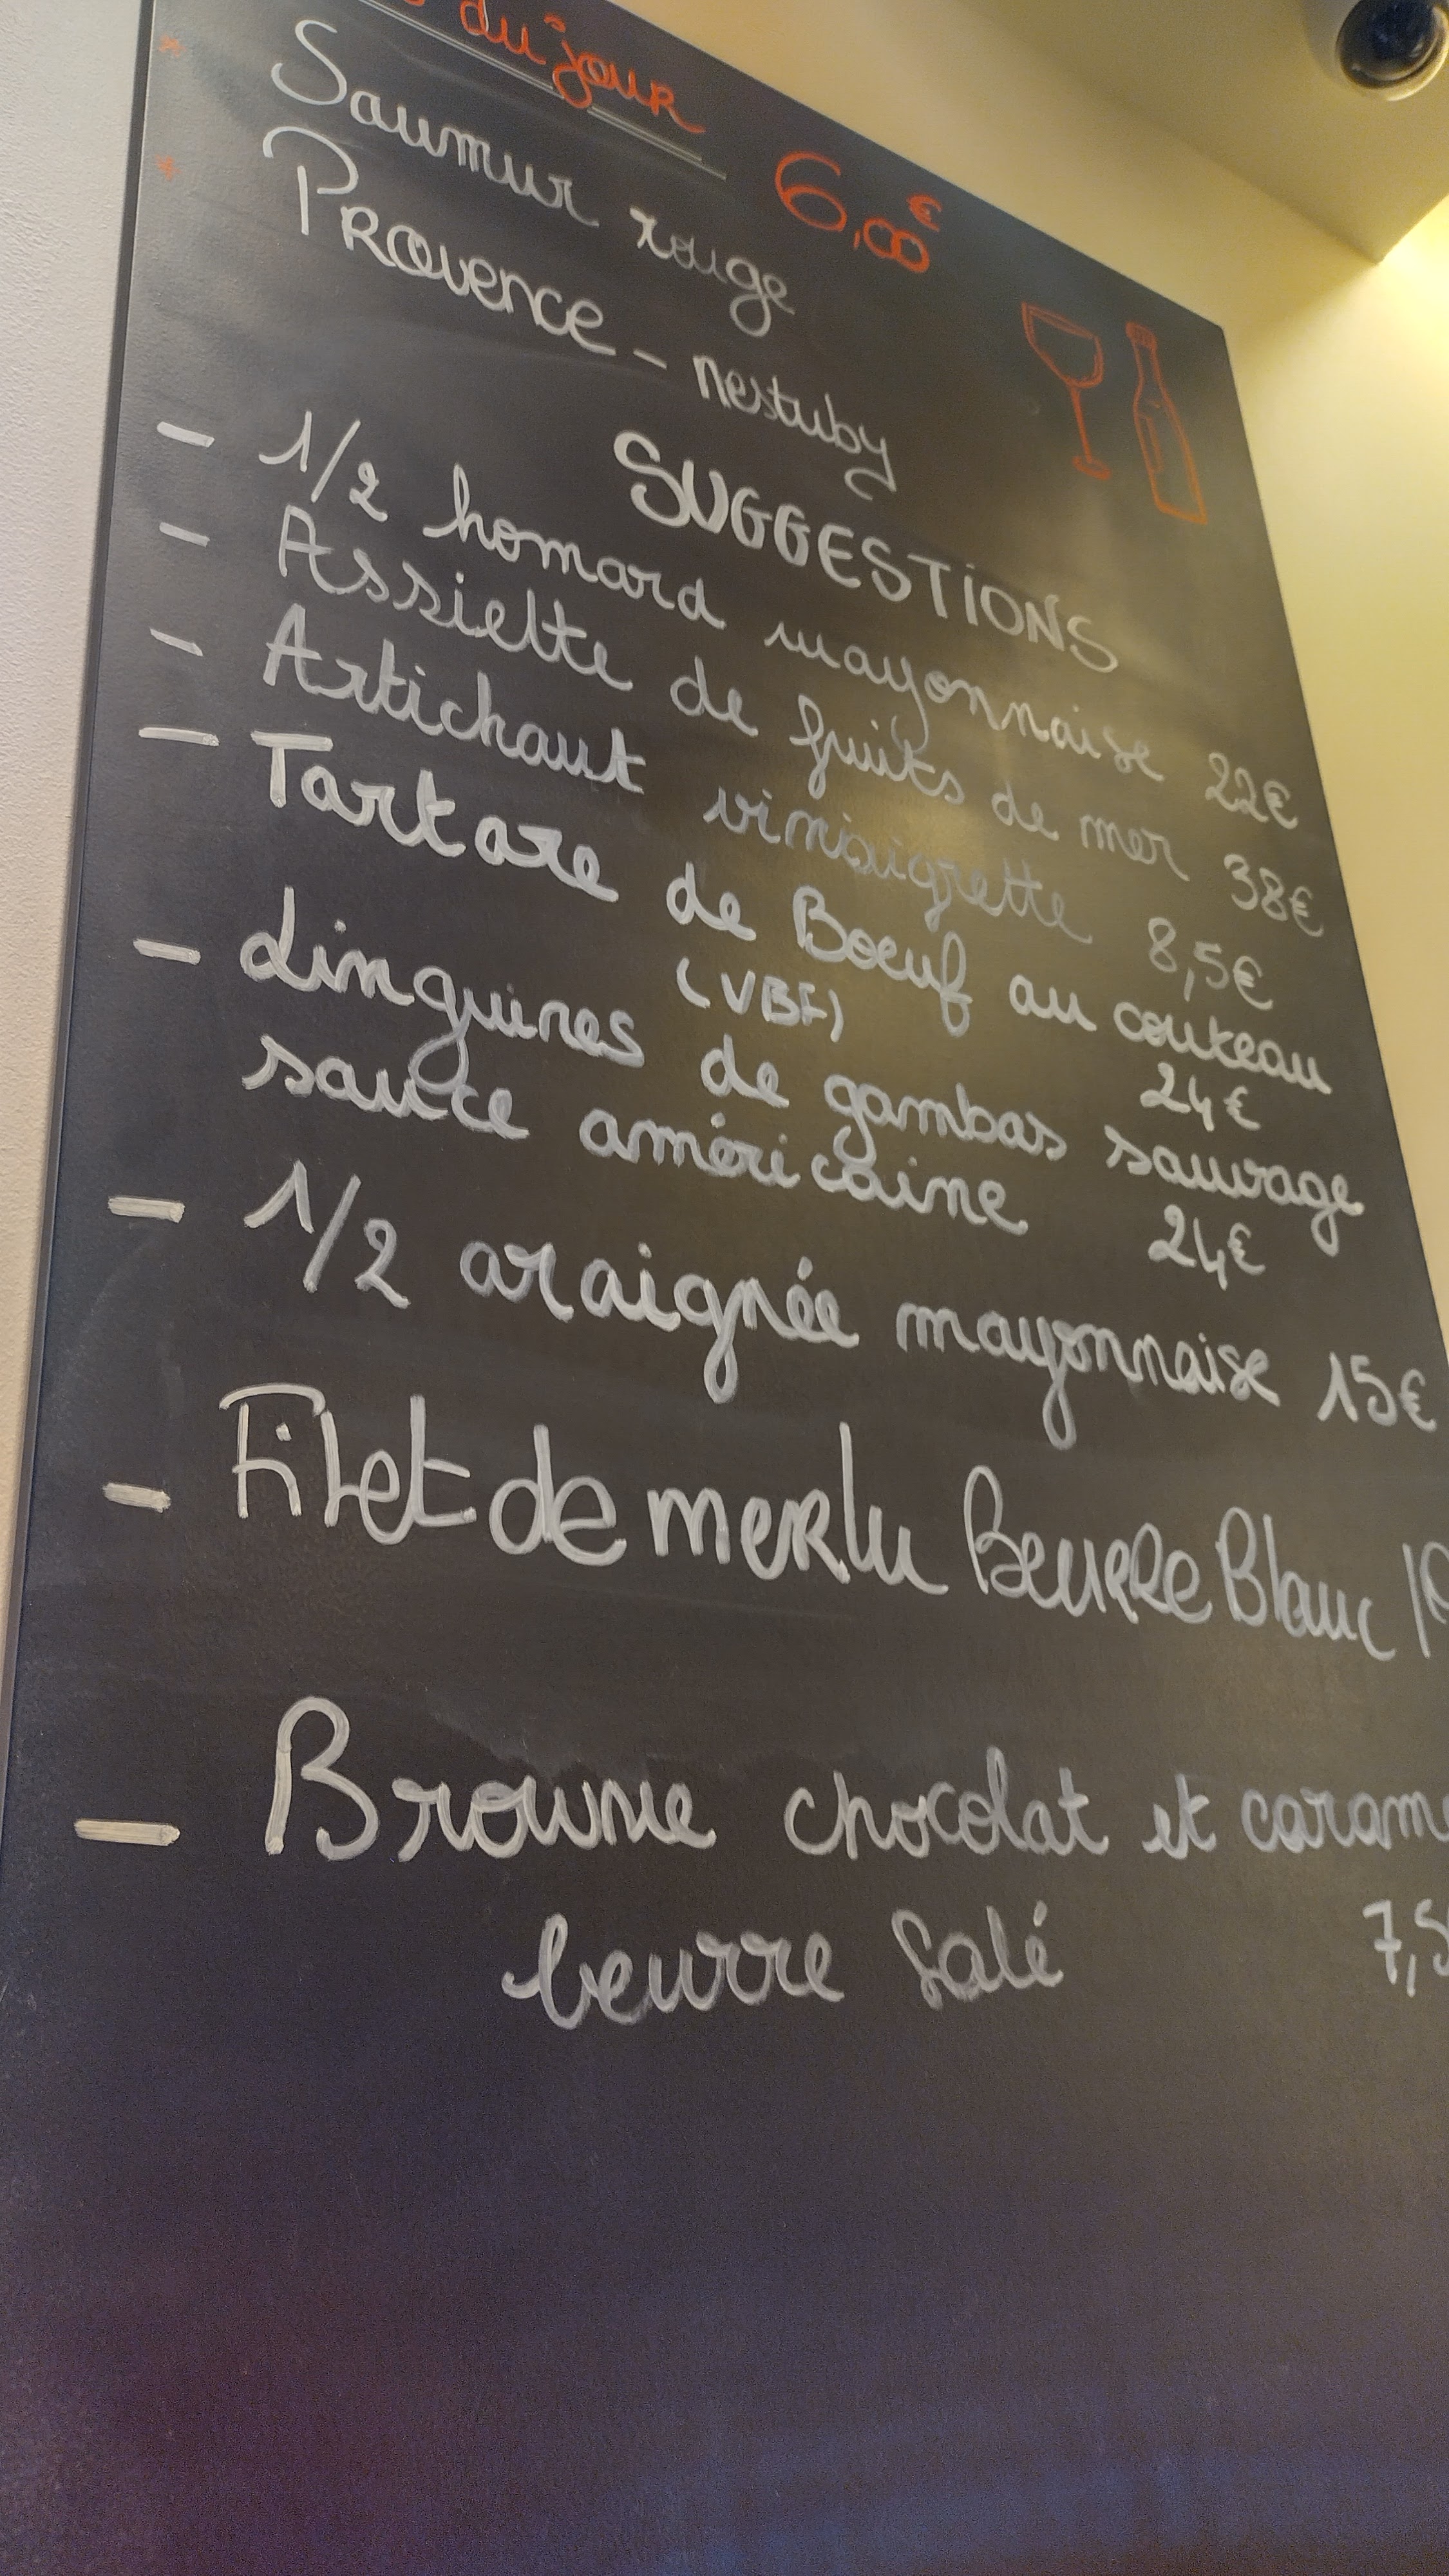 du jour
Saumur rouge 6,00€
Provence - nestuby
SUGGESTIONS
- 1/2 homard mayonnaise 22€
- Assiette de fruits de mer 38€
- Artichaut vinaigrette 8,5€
- Tartare de Boeuf au couteau
(VBF) 24€
- Linguines de gambas sauvage
sauce américaine 24€
- 1/2 araignée mayonnaise 15€
- Filet de merlu Beurre Blanc
- Brownie chocolat et
beurre salé